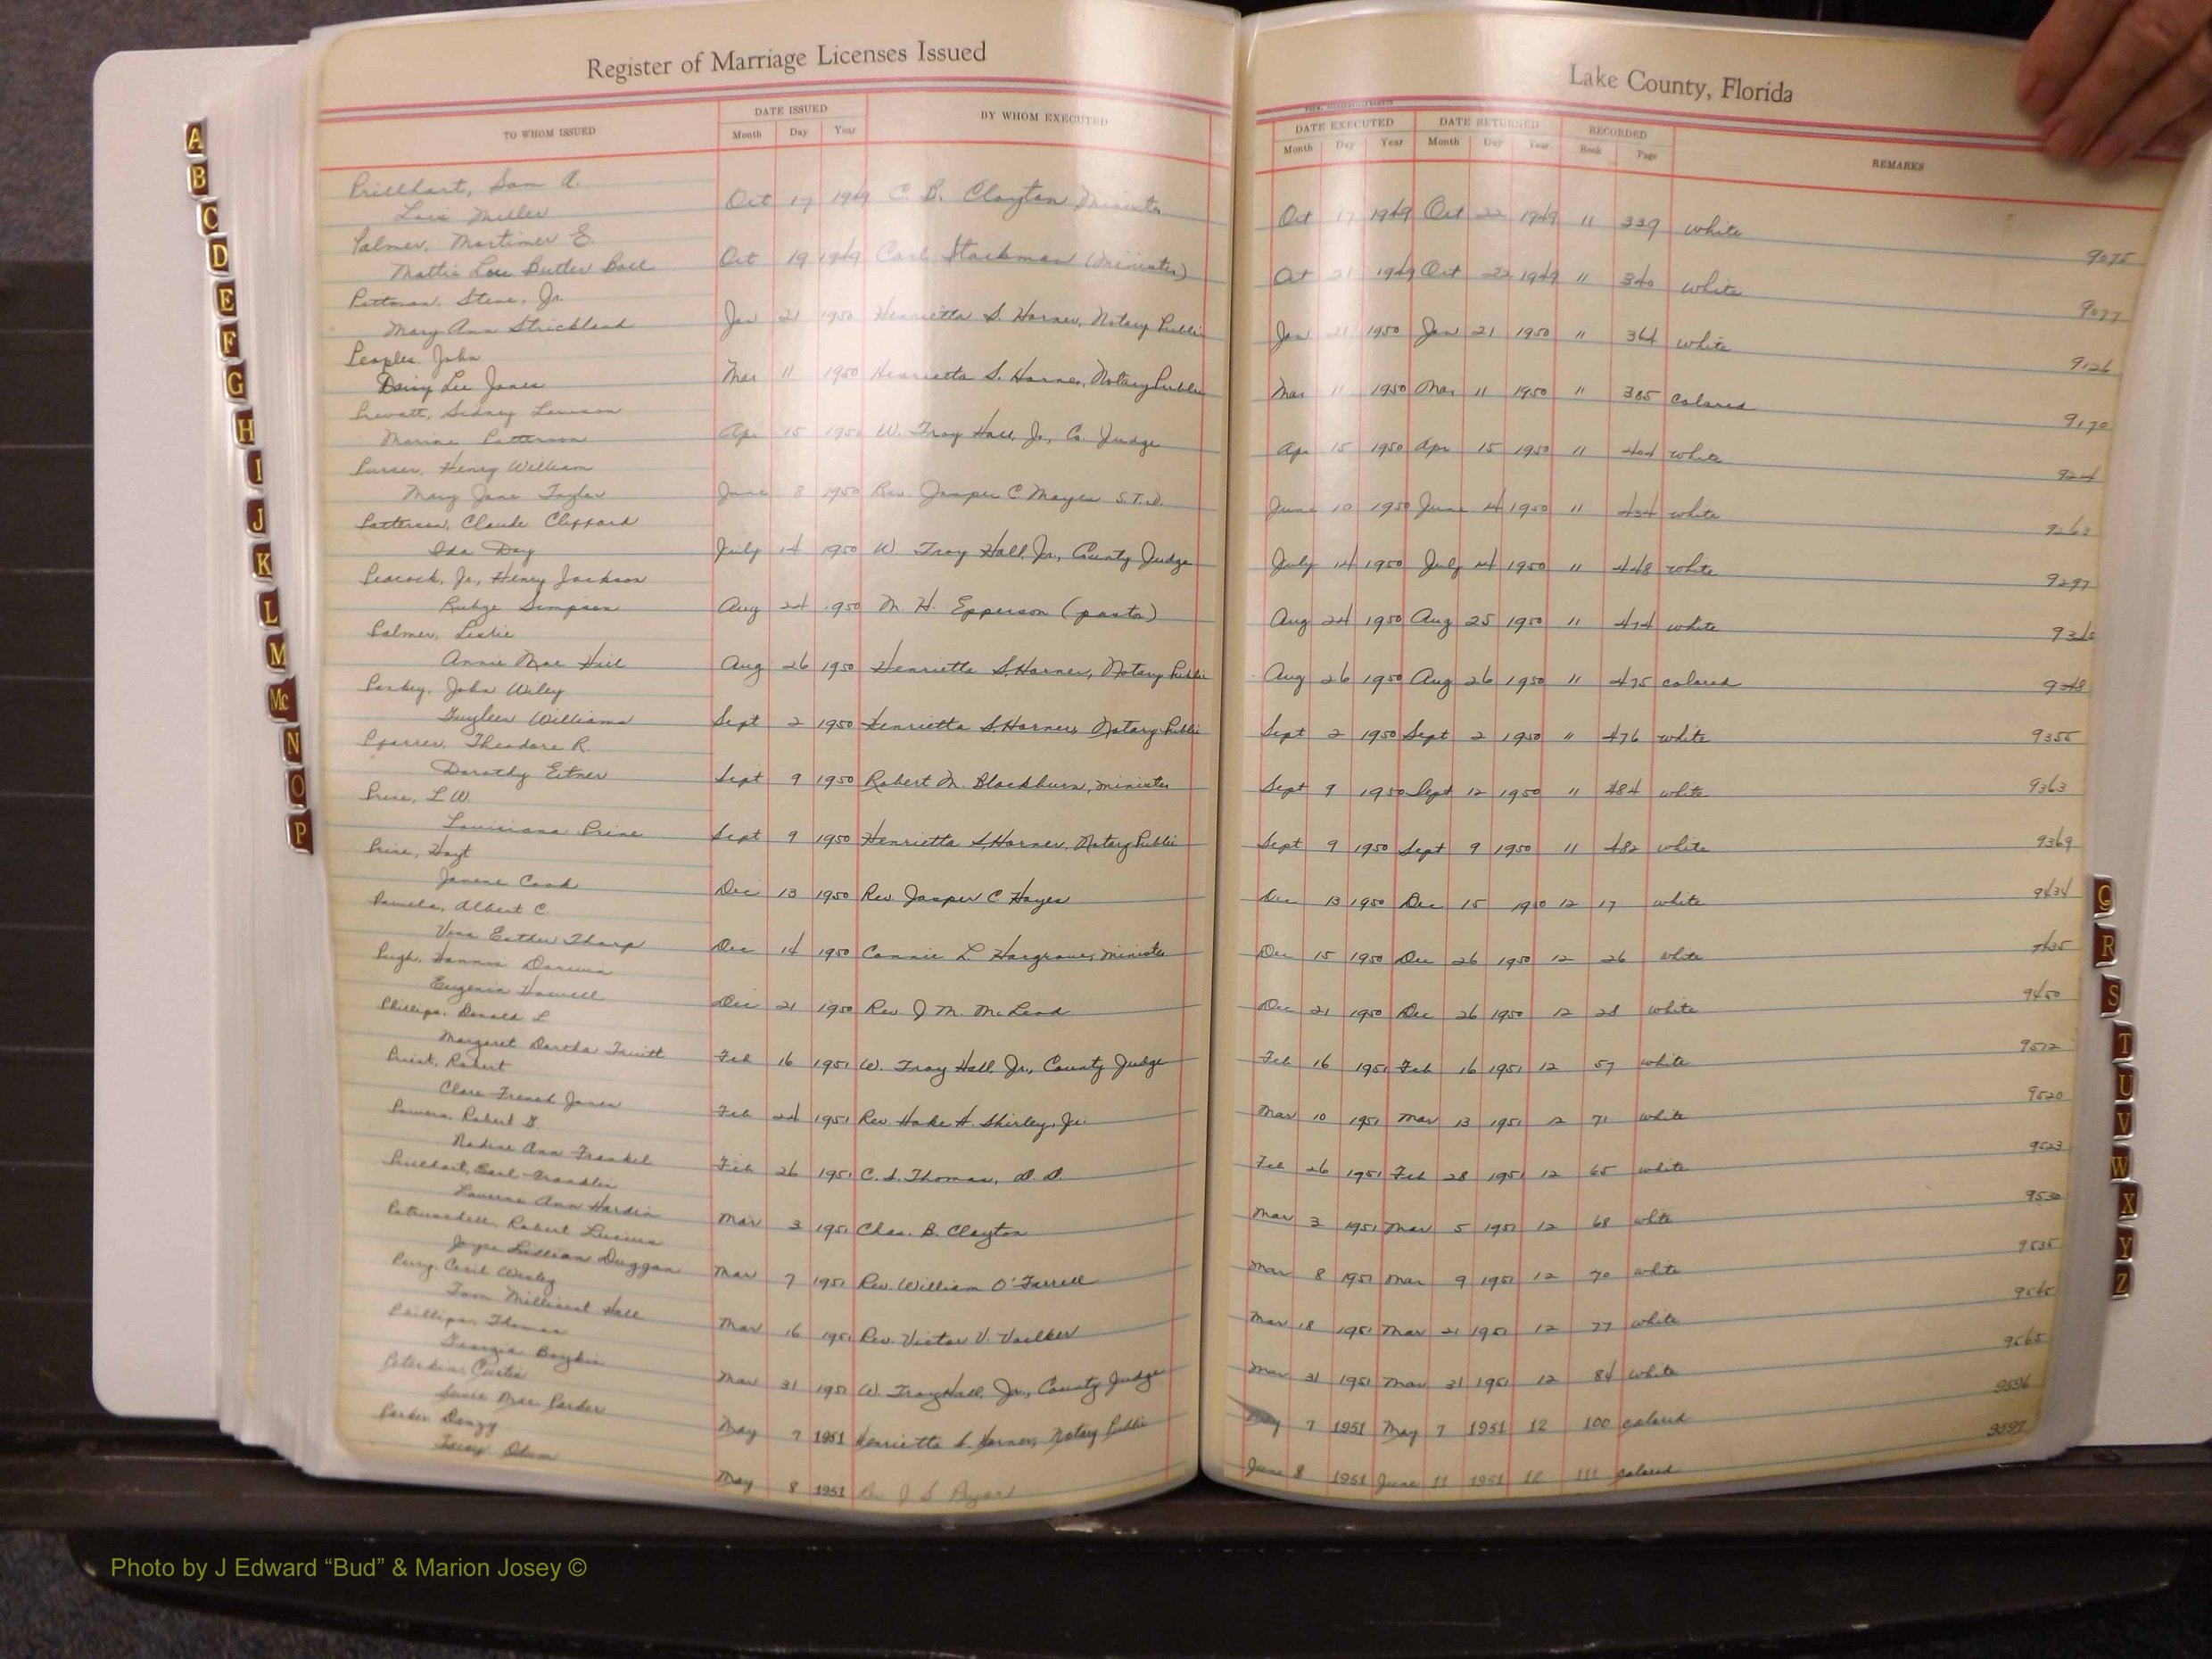 Register of Marriage Licenses Issued
Lake County, Florida
TO WHOM ISSUED DATE ISSUED BY WHOM EXECUTED
Month Day Year
DATE EXECUTED DATE RETURNED RECORDED REMARKS
Month Day Year Month Day Year Book Page
Prillhart, Sam A.
Lois Miller
Oct 17 1949 C. B. Clayton Minister Oct 17 1949 Oct 22 1949 11 339 white 9075
Palmer, Mortimer E.
Mattie Lou Butler Ball
Oct 19 1949 Carl Stackman (Minister) Oct 21 1949 Oct 22 1949 11 340 white 9077
Pittman, Steve, Jr.
Mary Ann Strickland
Jan 21 1950 Henrietta S. Horner, Notary Public Jan 21 1950 Jan 21 1950 11 364 white 9126
Peoples, John
Daisy Lee Jones
Mar 11 1950 Henrietta S. Horner, Notary Public Mar 11 1950 Mar 11 1950 11 385 colored 9170
Prevatt, Sidney
Patterson
Apr 15 1950 W. Troy Hall, Jr., Co. Judge Apr 15 1950 Apr 15 1950 11 404 white
Purser, Henry William
Mary Jane Taylor
June 8 1950 Rev. Jasper C. Mayes S.T.D. June 10 1950 June 14 1950 11 434 white 9263
Patterson, Claude Clifford
Ida Day
July 14 1950 W. Troy Hall, Jr., County Judge July 14 1950 July 14 1950 11 448 white 9297
Peacock, Jr., Henry Jackson
Rubye Simpson
Aug 24 1950 M. H. Epperson (pastor) Aug 24 1950 Aug 25 1950 11 474 white
Palmer, Leslie
Annie Mae Hill
Aug 26 1950 Henrietta S. Horner, Notary Public Aug 26 1950 Aug 26 1950 11 475 colored 9348
John Wiley
Guyleen Williams
Sept 2 1950 Henrietta S. Horner, Notary Public Sept 2 1950 Sept 2 1950 11 476 white 9355
Pfarrer, Theodore R.
Dorothy Eitner
Sept 9 1950 Robert M. Blackburn, minister Sept 9 1950 Sept 12 1950 11 484 white 9363
Prine, L.W.
Louisiana Prine
Sept 9 1950 Henrietta S. Horner, Notary Public Sept 9 1950 Sept 9 1950 11 482 white 9369
Prine, Hoyt
Janene Cook
Dec 13 1950 Rev. Jasper C Hayes Dec 13 1950 Dec 15 1950 12 17 white 9434
Albert C.
Esther Tharp
Dec 14 1950 Connie L. Hargrove, Minister Dec 15 1950 Dec 26 1950 12 26 white 9435
Pugh,
Eugenia Howell
Dec 21 1950 Rev. J M. McLeod Dec 21 1950 Dec 26 1950 12 28 white 9450
Phillips, Donald L
Margaret Dortha Truitt
Feb 16 1951 W. Troy Hall, Jr., County Judge Feb 16 1951 Feb 16 1951 12 57 white 9512
Priest, Robert
Clare French Jones
Feb 24 1951 Rev. Hake H. Shirley, Jr. Mar 10 1951 Mar 13 1951 12 71 white 9520
Powers, Robert G.
Nadine Ann Frankel
Feb 26 1951 C. S. Thomas, D.D. Feb 26 1951 Feb 28 1951 12 65 white 9523
Prillhart, Earl Franklin
Laverne Ann Hardin
Mar 3 1951 Chas. B. Clayton Mar 3 1951 Mar 5 1951 12 68 white 9530
Robert Lucius
Joyce Lillian Duggan
Mar 7 1951 Rev. William O'Farrell Mar 8 1951 Mar 9 1951 12 70 white 9535
Perry, Cecil Wesley
Millicent Hall
Mar 16 1951 Rev. Victor V. Voelker Mar 18 1951 Mar 21 1951 12 77 white 9545
Phillips, Thomas
Georgia Boykin
Mar 31 1951 W. Troy Hall, Jr., County Judge Mar 31 1951 Mar 31 1951 12 84 white 9565
Peterkin, Curtis
Susie Mae Parker
May 7 1951 Henrietta S. Horner, Notary Public May 7 1951 May 7 1951 12 100 colored 9596
Parker Danzy
Odum
May 8 1951 Rev J S June 8 1951 June 11 1951 12 111 colored 9597
A
B
C
D
E
F
G
H
I
J
K
L
M
Mc
N
O
P
Q
R
S
T
U
V
W
X
Y
Z
Photo by J Edward “Bud” & Marion Josey ©